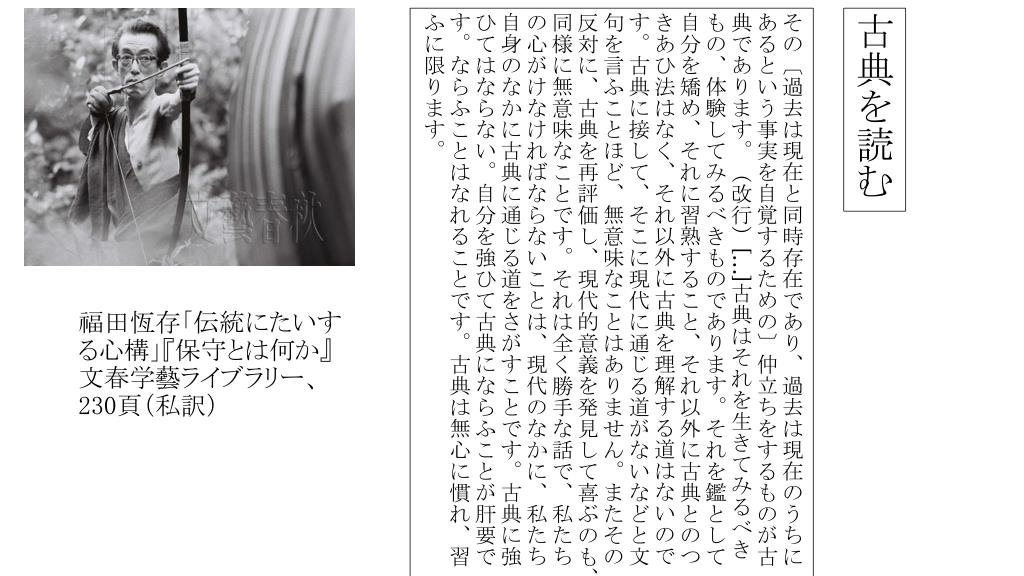 古典を読む
その〔過去は現在と同時存在であり、過去は現在のうちに
あるという事実を自覚するための〕仲立ちをするものが古
典であります。（改行）[…]古典はそれを生きてみるべき
もの、体験してみるべきものであります。それを鑑として
自分を矯め、それに習熟すること、それ以外に古典とのつ
きあひ法はなく、それ以外に古典を理解する道はないので
す。古典に接して、そこに現代に通じる道がないなどと文
句を言ふことほど、無意味なことはありません。またその
反対に、古典を再評価し、現代的意義を発見して喜ぶのも、
同様に無意味なことです。それは全く勝手な話で、私たち
の心がけなければならないことは、現代のなかに、私たち
自身のなかに古典に通じる道をさがすことです。古典に強
ひてはならない。自分を強ひて古典にならふことが肝要で
す。ならふことはなれることです。古典は無心に慣れ、習
ふに限ります。
文藝春秋
福田恆存「伝統にたいす
る心構」『保守とは何か』
文春学藝ライブラリー、
230頁（私訳）